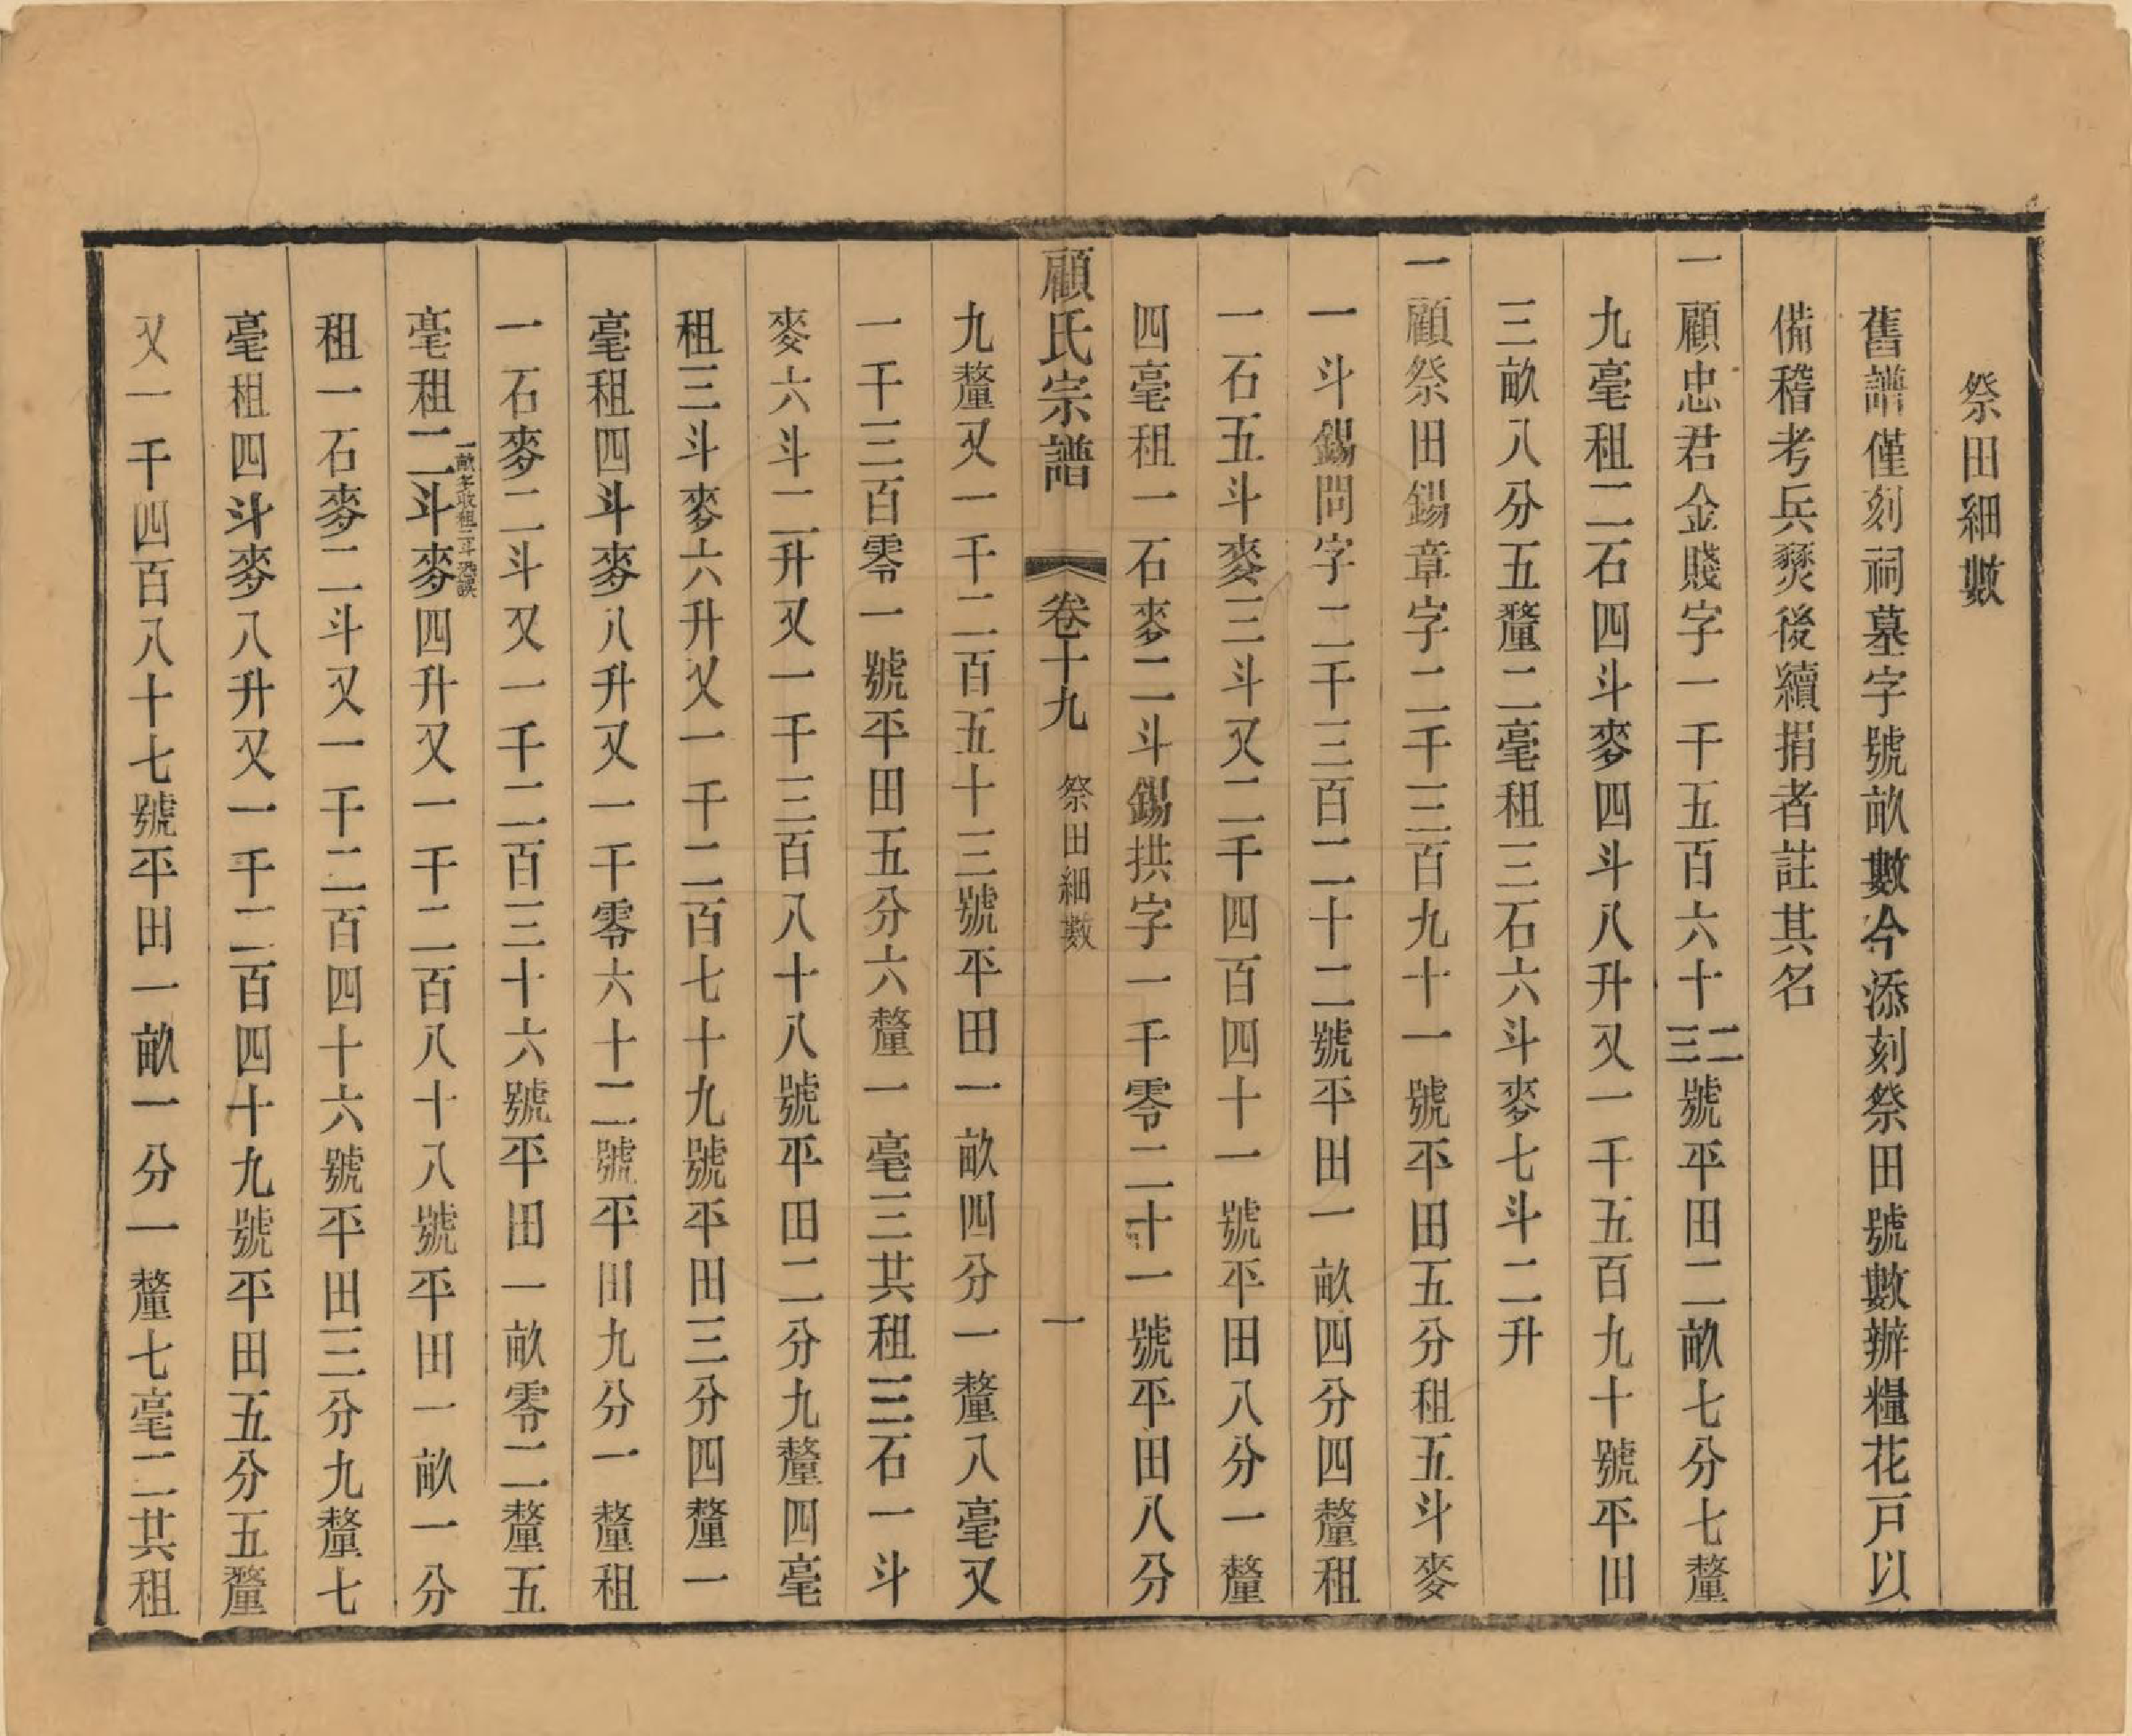 祭田細數
舊譜僅刻祠墓字號畝數今添刻祭田號數辦糧花戸以
備稽考兵燹後續捐者註其名
一顧忠君金賤字一千五百六十二三號平田二畝七分七釐
九毫租二石四斗麥四斗八升又一千五百九十號平田
三畝八分五釐二毫租三石六斗麥七斗二升
一顧祭田錫章字二千三百九十一號平田五分租五斗麥
一斗錫問字二千三百二十二號平田一畝四分四釐租
一石五斗麥三斗又二千四百四十一號平田八分一釐
四毫租一石麥二斗錫拱字一千零二十一號平田八分
顧氏宗譜 卷十九 祭田細數 一
九釐又一千二百五十三號平田一畝四分一釐八毫又
一千三百零一號平田五分六釐一毫三共租三石一斗
麥六斗二升又一千三百八十八號平田二分九釐四毫
租三斗麥六升又一千二百七十九號平田三分四釐一
毫租四斗麥八升又一千零六十二號平田九分一釐租
一石麥二斗又一千二百三十六號平田一畝零二釐五
毫租二斗麥四升又一千二百八十八號平田一畝一分
一畝零收租二斗恐誤
租一石麥二斗又一千二百四十六號平田三分九釐七
毫租四斗麥八升又一千二百四十九號平田五分五釐
又一千四百八十七號平田一畝一分一釐七毫二共租